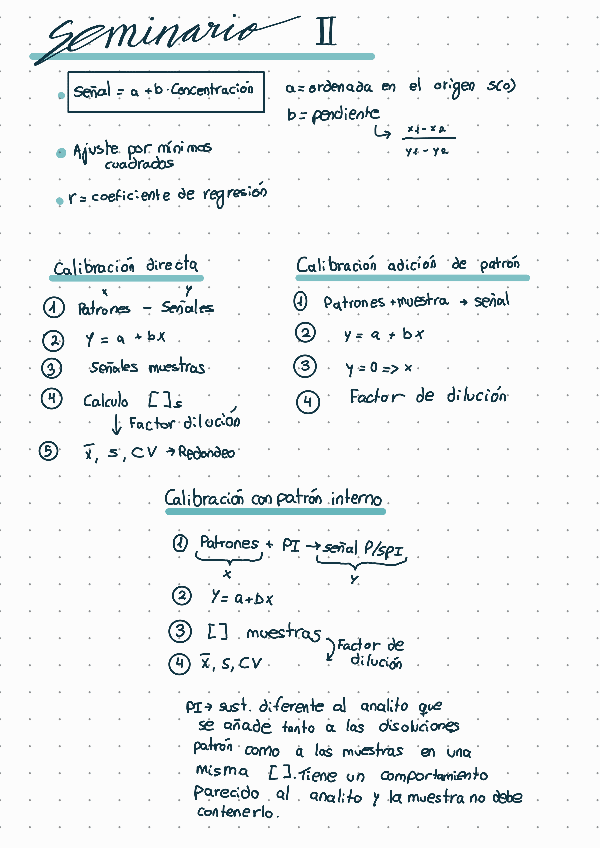 Seminario II
Señal = a + b · Concentración
a = ordenada en el origen s(o)
b = pendiente
x1 - x2
y1 - y2
Ajuste por mínimos
cuadrados
r = coeficiente de regresión
Calibración directa
x y
① Patrones - Señales
② y = a + bx
③ Señales muestras
④ Calculo [ ]s
↓ Factor dilución
⑤ x̄, s, CV → Redondeo
Calibración adición de patrón
① Patrones + muestra → señal
② y = a + bx
③ y = 0 => x
④ Factor de dilución
Calibración con patrón interno
① Patrones + PI → señal P/SPI
x y
② y = a + bx
③ [ ] muestras
Factor de
dilución
④ x̄, s, CV
PI → sust. diferente al analito que
se añade tanto a las disoluciones
patrón como a las muestras en una
misma [ ]. Tiene un comportamiento
parecido al analito y la muestra no debe
contenerlo.